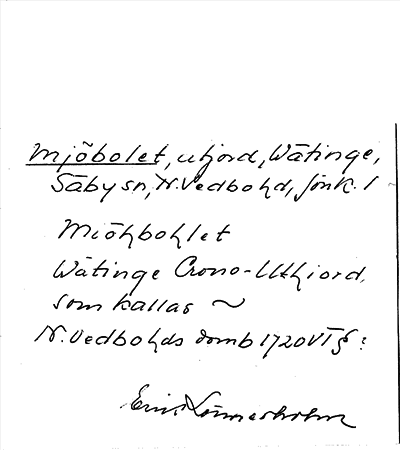 Mjöbolet, utjord, Wätinge,
Säby sn, N. Vedbo hd, Jönk. l
Miöhbohlet
Wätinge Crono-Uthjord,
som kallas ~
N. Vedbo hds domb 1720 VT §: